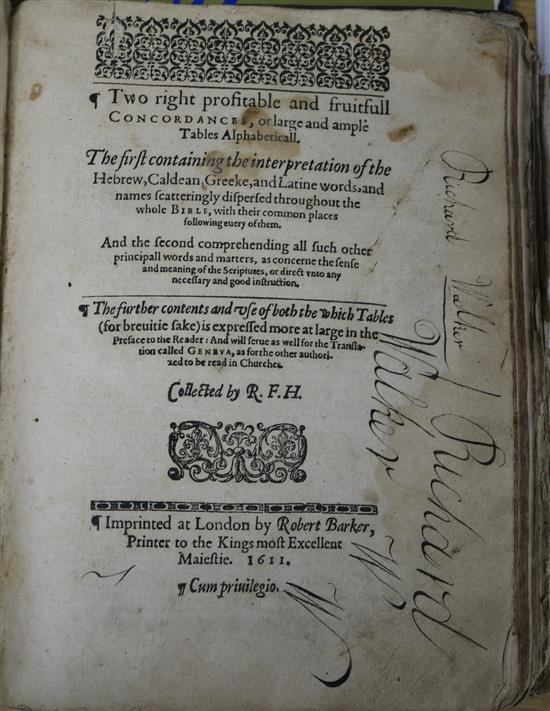 ¶ Two right profitable and fruitfull
CONCORDANCES, or large and ample
Tables Alphabeticall.
The first containing the interpretation of the
Hebrew, Caldean, Greeke, and Latine words, and
names scatteringly dispersed throughout the
whole BIBLE, with their common places
following euery of them.
And the second comprehending all such other
principall words and matters, as concerne the sense
and meaning of the Scriptures, or direct vnto any
necessary and good instruction.
¶ The further contents and vse of both the which Tables
(for breuitie sake) is expressed more at large in the
Preface to the Reader: And will serue as well for the Transla-
tion called GENEVA, as for the other authori-
zed to be read in Churches.
Collected by R. F. H.
¶ Imprinted at London by Robert Barker,
Printer to the Kings most Excellent
Maiestie. 1611.
¶ Cum priuilegio.
Richard Walker
Richard
Walker W
W